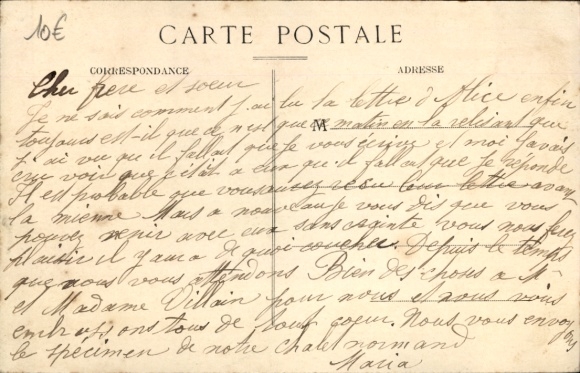 10€
CARTE POSTALE
CORRESPONDANCE
ADRESSE
M
Cher frere et soeur
Je ne sais comment j'ai lu la lettre d Alice enfin
toujours est-il que ce n'est que matin en la relisant que
j. ai vu qu il fallait que je vous ecrive et moi j'avais
cru voir que c'etait a eux qu il fallait que je réponde
Il est probable que vous aurez reçu leur lettre avant
la mienne Mais a nouveau je vous dis que vous
pouvez venir avec eux sans crainte vous nous ferez
plaisir il y aura de quoi coucher. Depuis le temps
que nous vous attendons Bien des choses a Mr
et Madame Villain pour nous et nous vous
embrassons tous de tout coeur. Nous vous envoyons
le spécimen de notre chalet normand
Maria